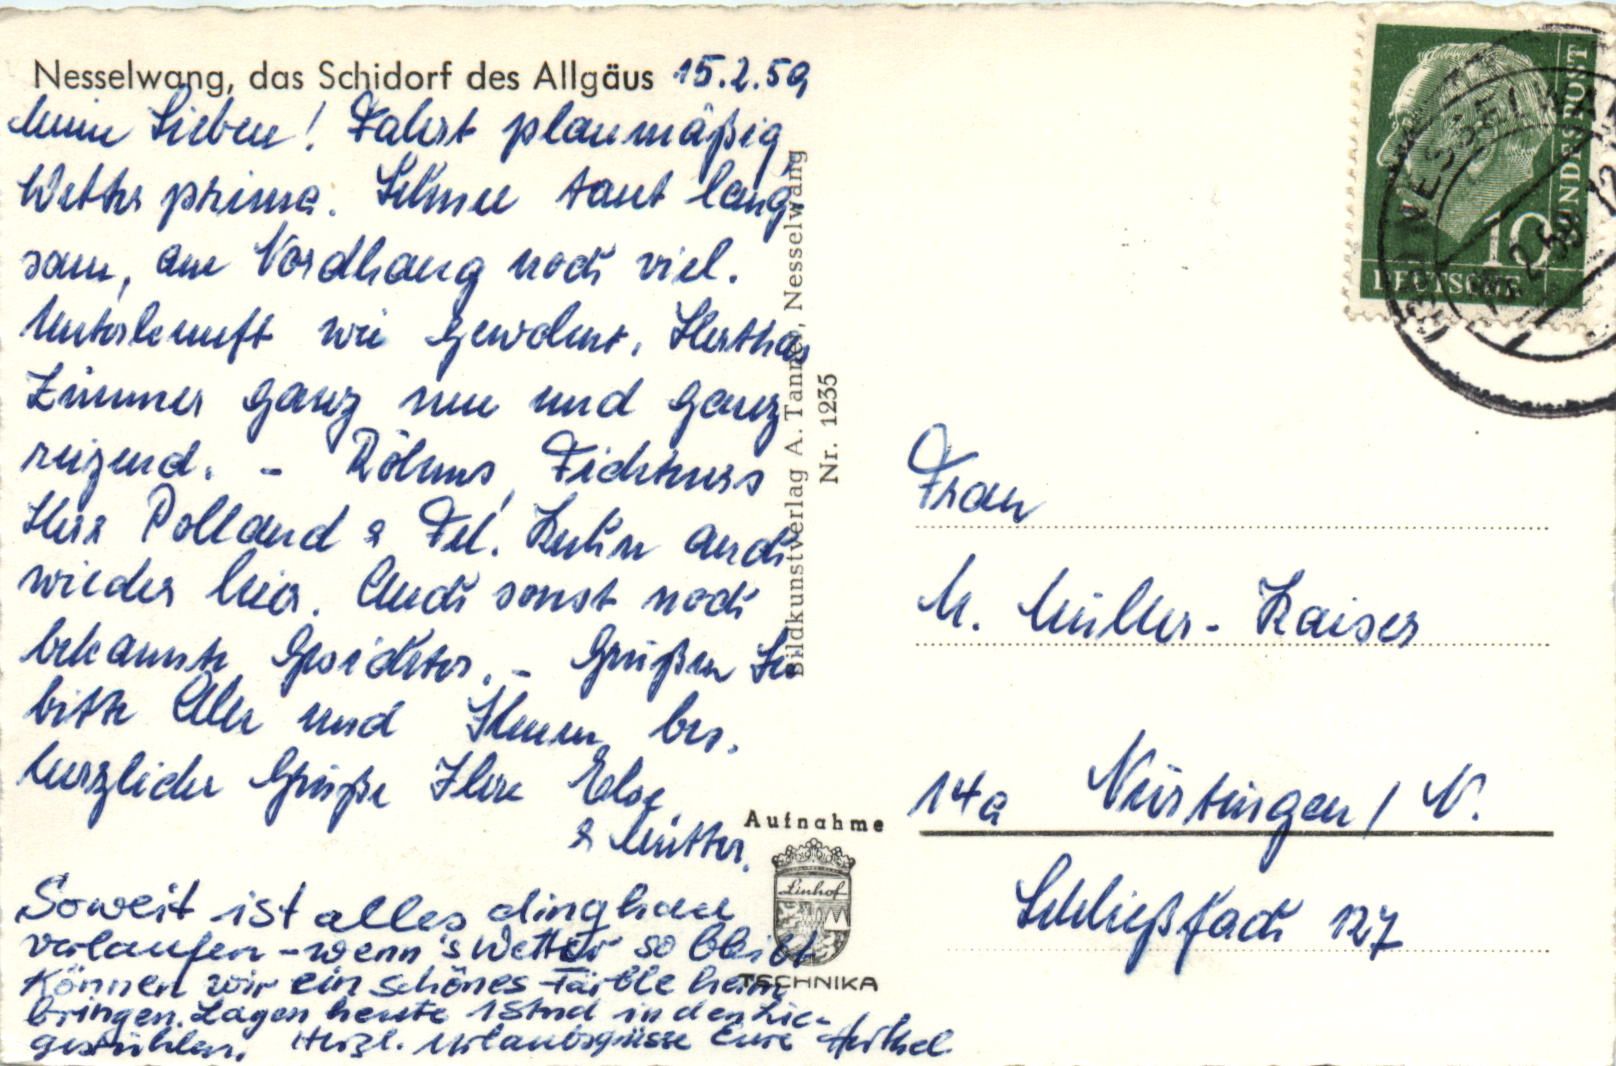 Nesselwang, das Schidorf des Allgäus 15.2.59
Meine Lieben! Fahrt planmäßig,
Wetter prima. Schnee taut lang-
sam, am Nordhang noch viel.
Unterkunft wie gewohnt, Herthas
Zimmer ganz neu und ganz
reizend. - Böhms, Fichtners
Herr Polland & Frl. Kuhn auch
wieder hier. Auch sonst noch
bekannte Gesichter. - Grüßen Sie
bitte Alle und Ihnen bes.
herzliche Grüße Ihre Else
& Mutter.
Soweit ist alles
verlaufen - wenn's Wetter so bleibt
können wir ein schönes Färble heim
bringen. Lagen heute 1 Stnd in den Lie-
gestühlen. Herzl. Urlaubsgrüsse Eure
Bildkunstverlag A. Tanner, Nesselwang
Nr. 1235
Aufnahme
Linhof
TECHNIKA
DEUTSCHE
BUNDESPOST
10
Frau
M. Müller-Kaiser
14a Nürtingen / N.
Schließfach 127